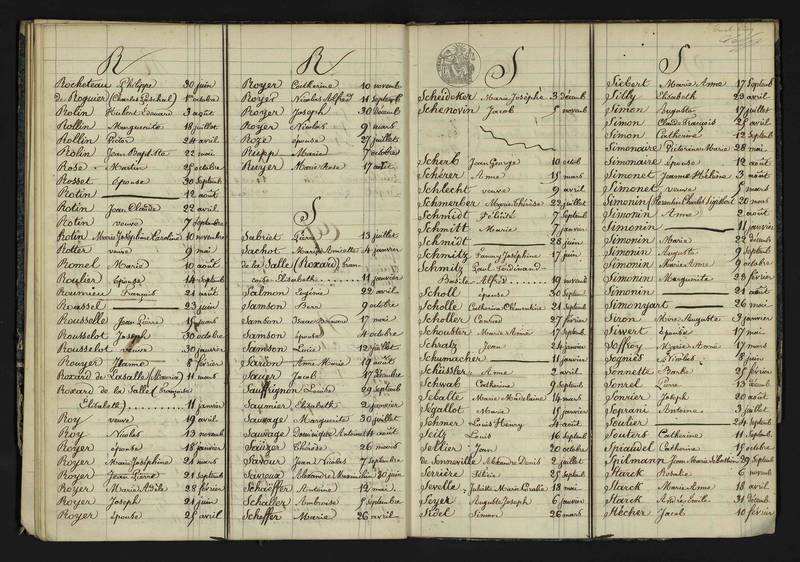 R
Rocheteau Philippe 30 juin
de Roguier (Charles Paschal) 1er octobre
Rolin Hubert Edouard 3 août
Rollin Marguerite 18 juillet
Rollin Victor 24 avril
Rolin Jean Baptiste 22 mai
Rose Martin 25 octobre
Rosset épouse 30 Septemb
Rotin 12 août
Rotin Jean Claude 22 avril
Rotin veuve 7 Septembre
Rotin Marie Joséphine Caroline 10 novembre
Rotter veuve 9 mai
Romel Marie 10 août
Roulier épouse 14 Septemb
Roumière François 21 août
Roussel 23 juin
Rousselle Jean Pierre 15 mars
Rousselot Joseph 30 octobre
Rousselot veuve 30 janvier
Rouyer 8 février
Roxard de Lasalle (Maria) 11 mars
Roxard de la Salle (Françoise
Elisabeth) 11 janvier
Roy veuve 19 avril
Roy Nicolas 13 novemb
Royer épouse 18 janvier
Royer Marie Joséphine 21 mars
Royer Jean Pierre 21 septemb
Royer Marie Adèle 28 février
Royer Joseph 21 juin
Royer épouse 25 avril
R
Royer Catherine 10 novemb
Royer Nicolas Alfred 11 Septemb
Royer Joseph 30 Décemb
Royer Nicolas 9 mars
Roze épouse 27 juillet
Rupp Marie 7 octobre
Ruyer Marie Rose 17 août
S
Sabriet Pierre 13 juillet
Sachot Marie Antoinette 4 janvier
de la Salle (Roxard) Fran
çoise Elisabeth 11 janvier
Salmon Eugénie 22 avril
Samson Berr 9 octobre
Samson 17 mai
Samson épouse 4 octobre
Samson Lucie 12 juillet
Saxon Anne Marie 19 août
Sauer Jacob 17 Décembre
Sauffrignon Louise 29 septemb
Saumier Elisabeth 2 janvier
Sauvage Marguerite 30 juillet
Sauvage Dominique Antoine 4 août
Saüzer Thérèse 26 mars
Savour Jean Nicolas 7 septembre
Savreux Alexandre Maximilien 30 juin
Schäeffer Antoine 12 mai
Schaller Ambroise 5 septembre
Scheffer Marie 26 avril
S
Scheideker Marie Josèphe 3 Décemb
Schenovin Jacob 5 novemb
Scherb Jean George 10 octob
Schérer Anne 15 mars
Schlecht veuve 9 avril
Schmerber Marie Thérèse 22 juillet
Schmidt Félicité 7 Septemb
Schmitt Marie 7 janvier
Schmidt 28 juin
Schmitz Fanny Joséphine 17 juin
Schmitz Paul Ferdinand
Basile Alfred 19 novemb
Scholl épouse 30 Septemb
Scholle Catherine Clémentine 21 Septemb
Scholler Conrad 27 février
Schouster Marie Anne 17 Septemb
Schratz Jean 24 janvier
Schumacher 11 janvier
Schüssler Anne 2 avril
Schwab Catherine 9 Septemb
Sebatte Marie Madeleine 14 mars
Ségallot Marie 15 janvier
Sehmer Louis Henry 4 août
Seitz Louis 16 Septemb
Sellier Jean 20 octobre
de Senneville Alexandre Denis 2 juillet
Serrière Marie 25 septemb
Servelle Juliette Marie 18 mai
Seyer Auguste Joseph 6 janvier
Sidel Simon 26 mars
S
Siebert Marie Anne 17 Septemb
Silly Elisabeth 23 avril
Simon Auguste 17 juillet
Simon Claude François 25 avril
Simon Catherine 12 Septemb
Simonaire Victorine Marie 28 mai
Simonaire épouse 12 août
Simonet Jeanne Hélène 3 août
Simonet veuve 5 mars
Simonin 20 mars
Simonin Anne 2 août
Simonin 11 janvier
Simonin Marie 22 Décemb
Simonin Auguste Septemb
Simonin Marie Anne 9 octobre
Simonin Marguerite 23 février
Simonin 21 août
Simonyart 26 mai
Siron Marie Auguste 3 janvier
Siwert épouse 17 mai
Soffroy Marie Anne 17 mars
Sogniès Nicolas 8 juin
Sonnette Barbe 25 février
Sonrel Pierre 13 Décemb
Sonrier Joseph 20 août
Soprani Antoine 3 juillet
Soulier 24 Septemb
Souters Catherine 11 Septemb
Spiaudel Catherine 15 octobre
Spitmann Jean Marie Sébastien 29 Septemb
Starck Rosalie 6 novemb
Starck Marie Anne 18 avril
Starck André Emile 31 Décemb
Stécher Jacob 10 février